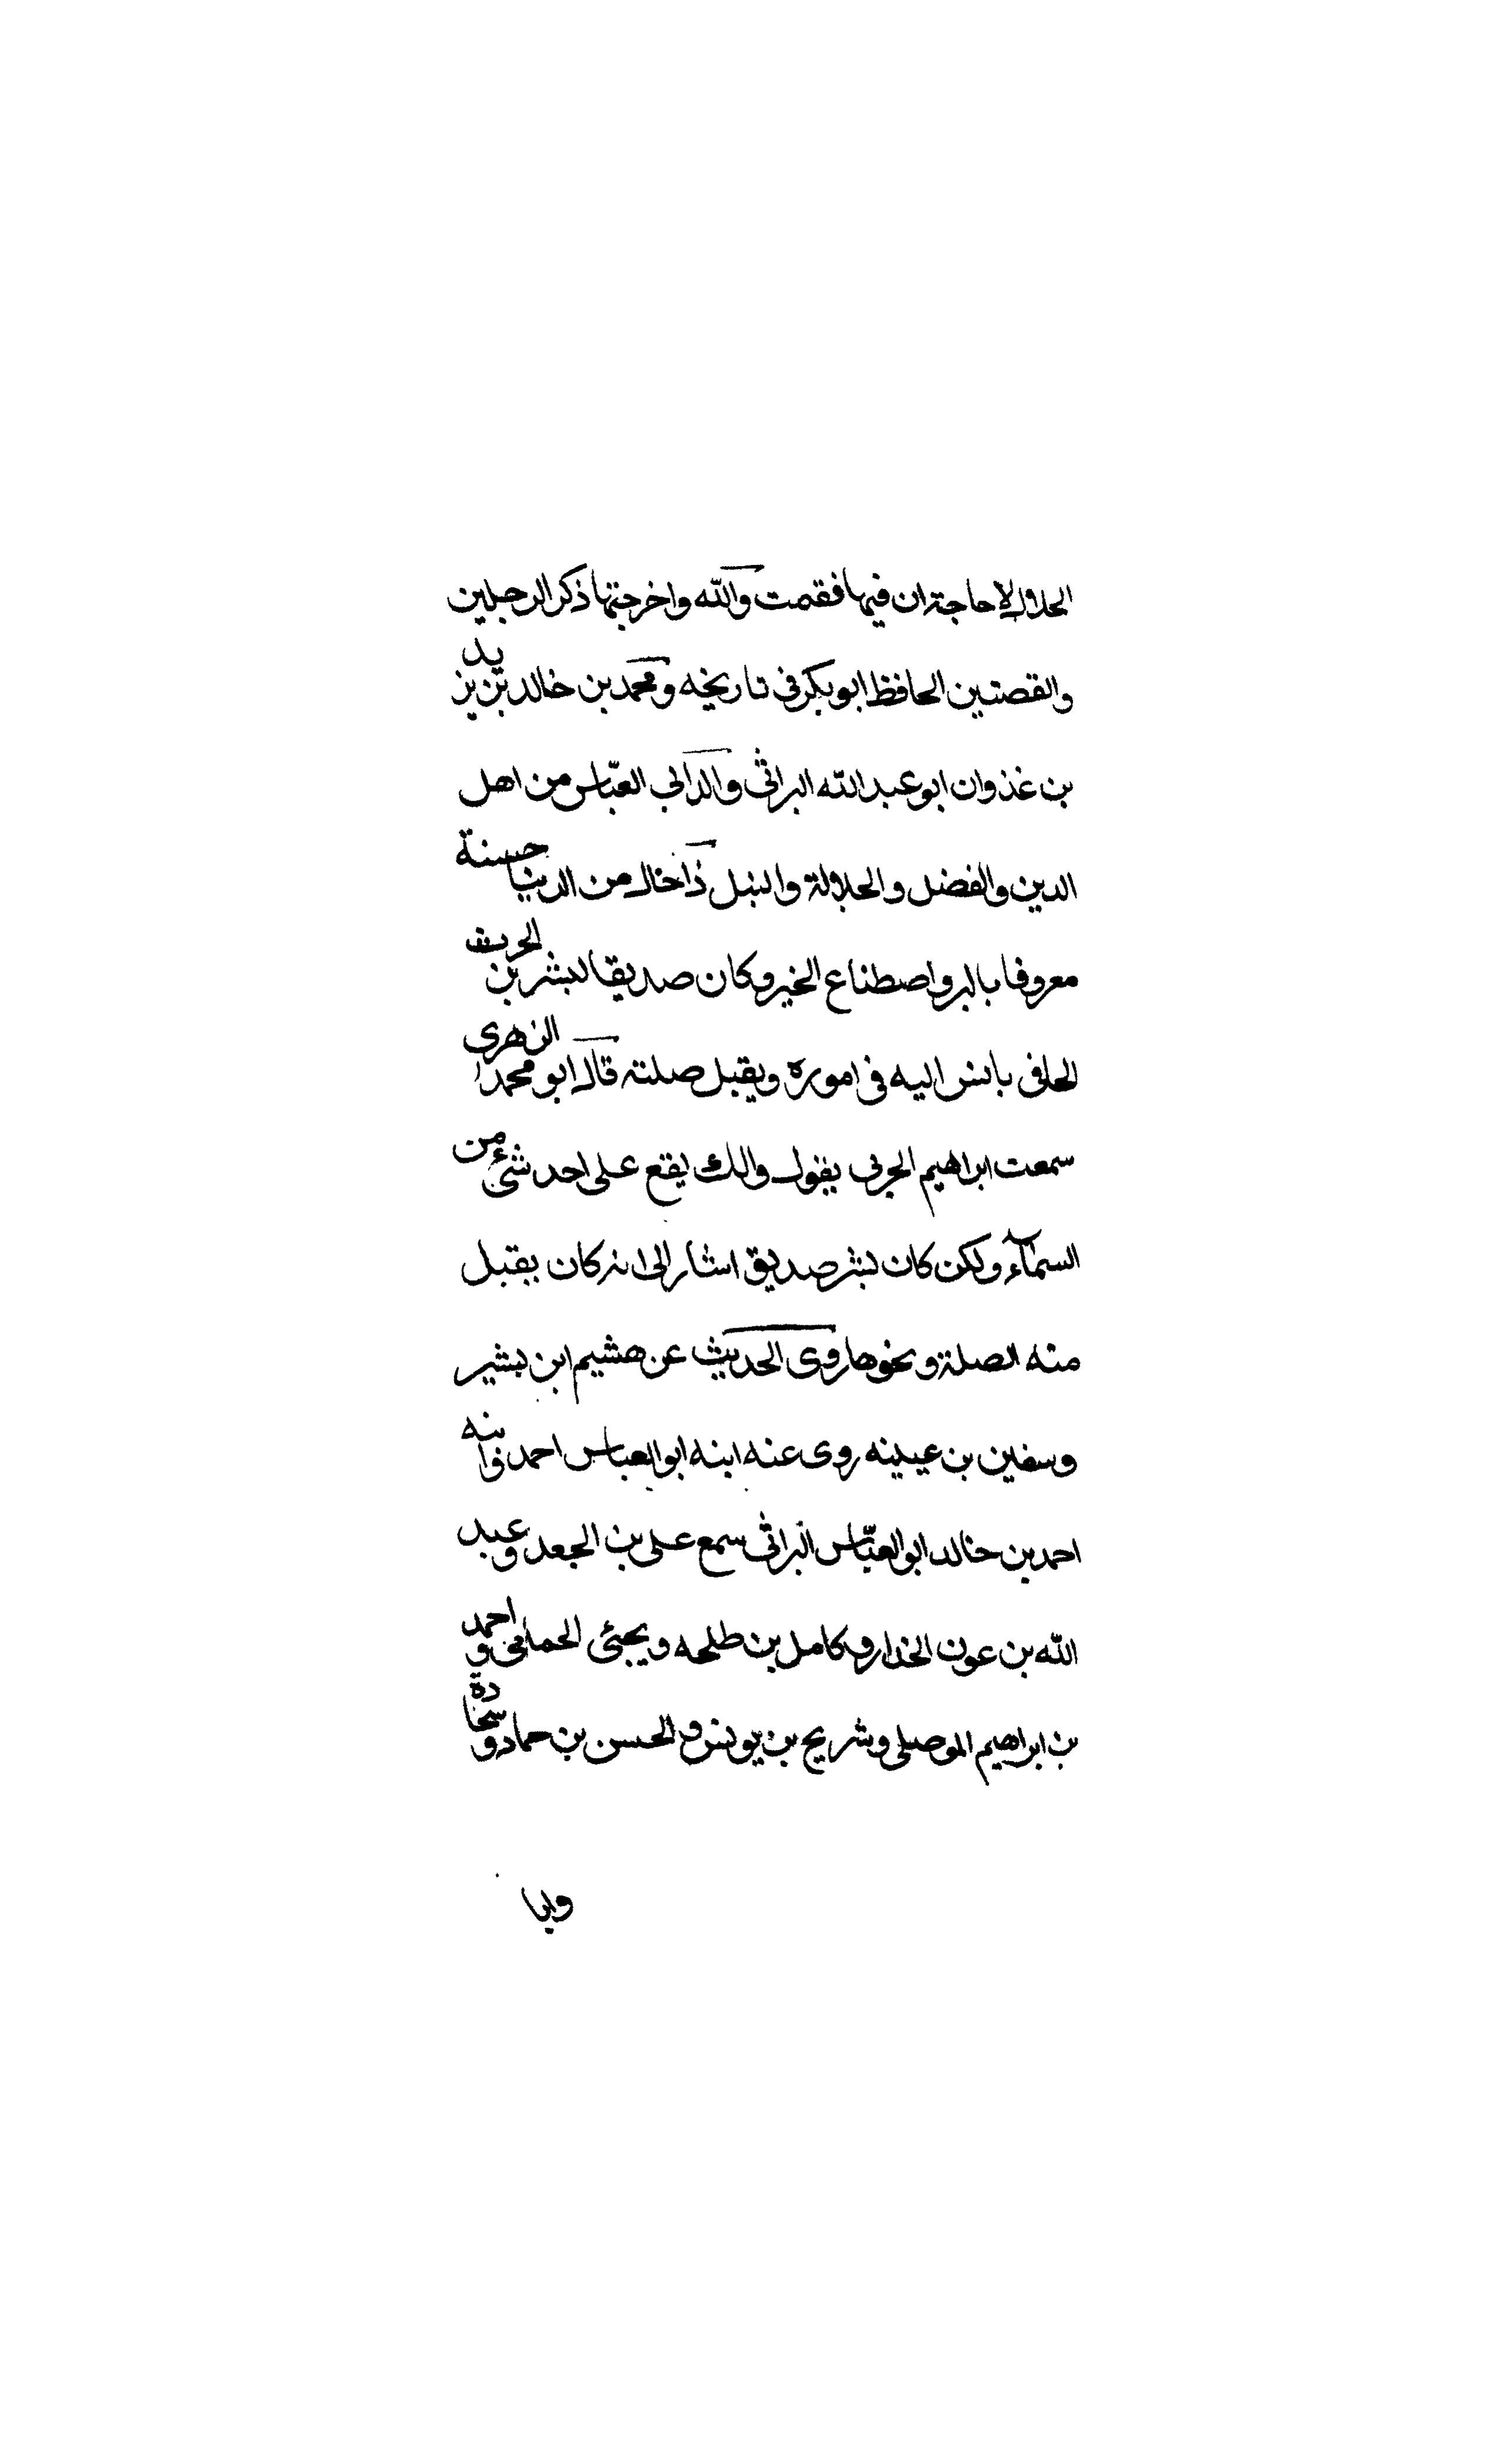 الحلال لا حاجة ان فيها فقمت والله واخرجتها ذكر الرجلين
والقصتين الحافظ ابو بكر فى تاريخه ومحمد بن خالد بن يزيد
بن غذوان ابو عبد الله البراثى والد ابى العباس من اهل
الدين والفضل والجلالة والنبل ذا حال من الدنيا حسنة
معروفا بالبر واصطناع الخير وكان صديقا لبشر بن الحرث
الحافى يانس اليه فى اموره ويقبل صلته قال ابو محمد الزهرى
سمعت ابراهيم الحربى يقول والك يقع على احد شئ من
السماء ولكن كان لبشر صديق اشار الى انه كان يقبل
منه الصلة ونحوها روى الحديث عن هشيم ابن بشير
وسفين بن عيينه روى عنه ابنه ابو العباس احمد وابنه
احمد بن خالد ابو العباس البراثى سمع على بن الجعد وعبد
الله بن عون الخذار وكامل بن طلحه ويحيى الحمانى واحمد
بن ابراهيم الموصلى وشريح بن يونس والحسن بن حماد وسجادة